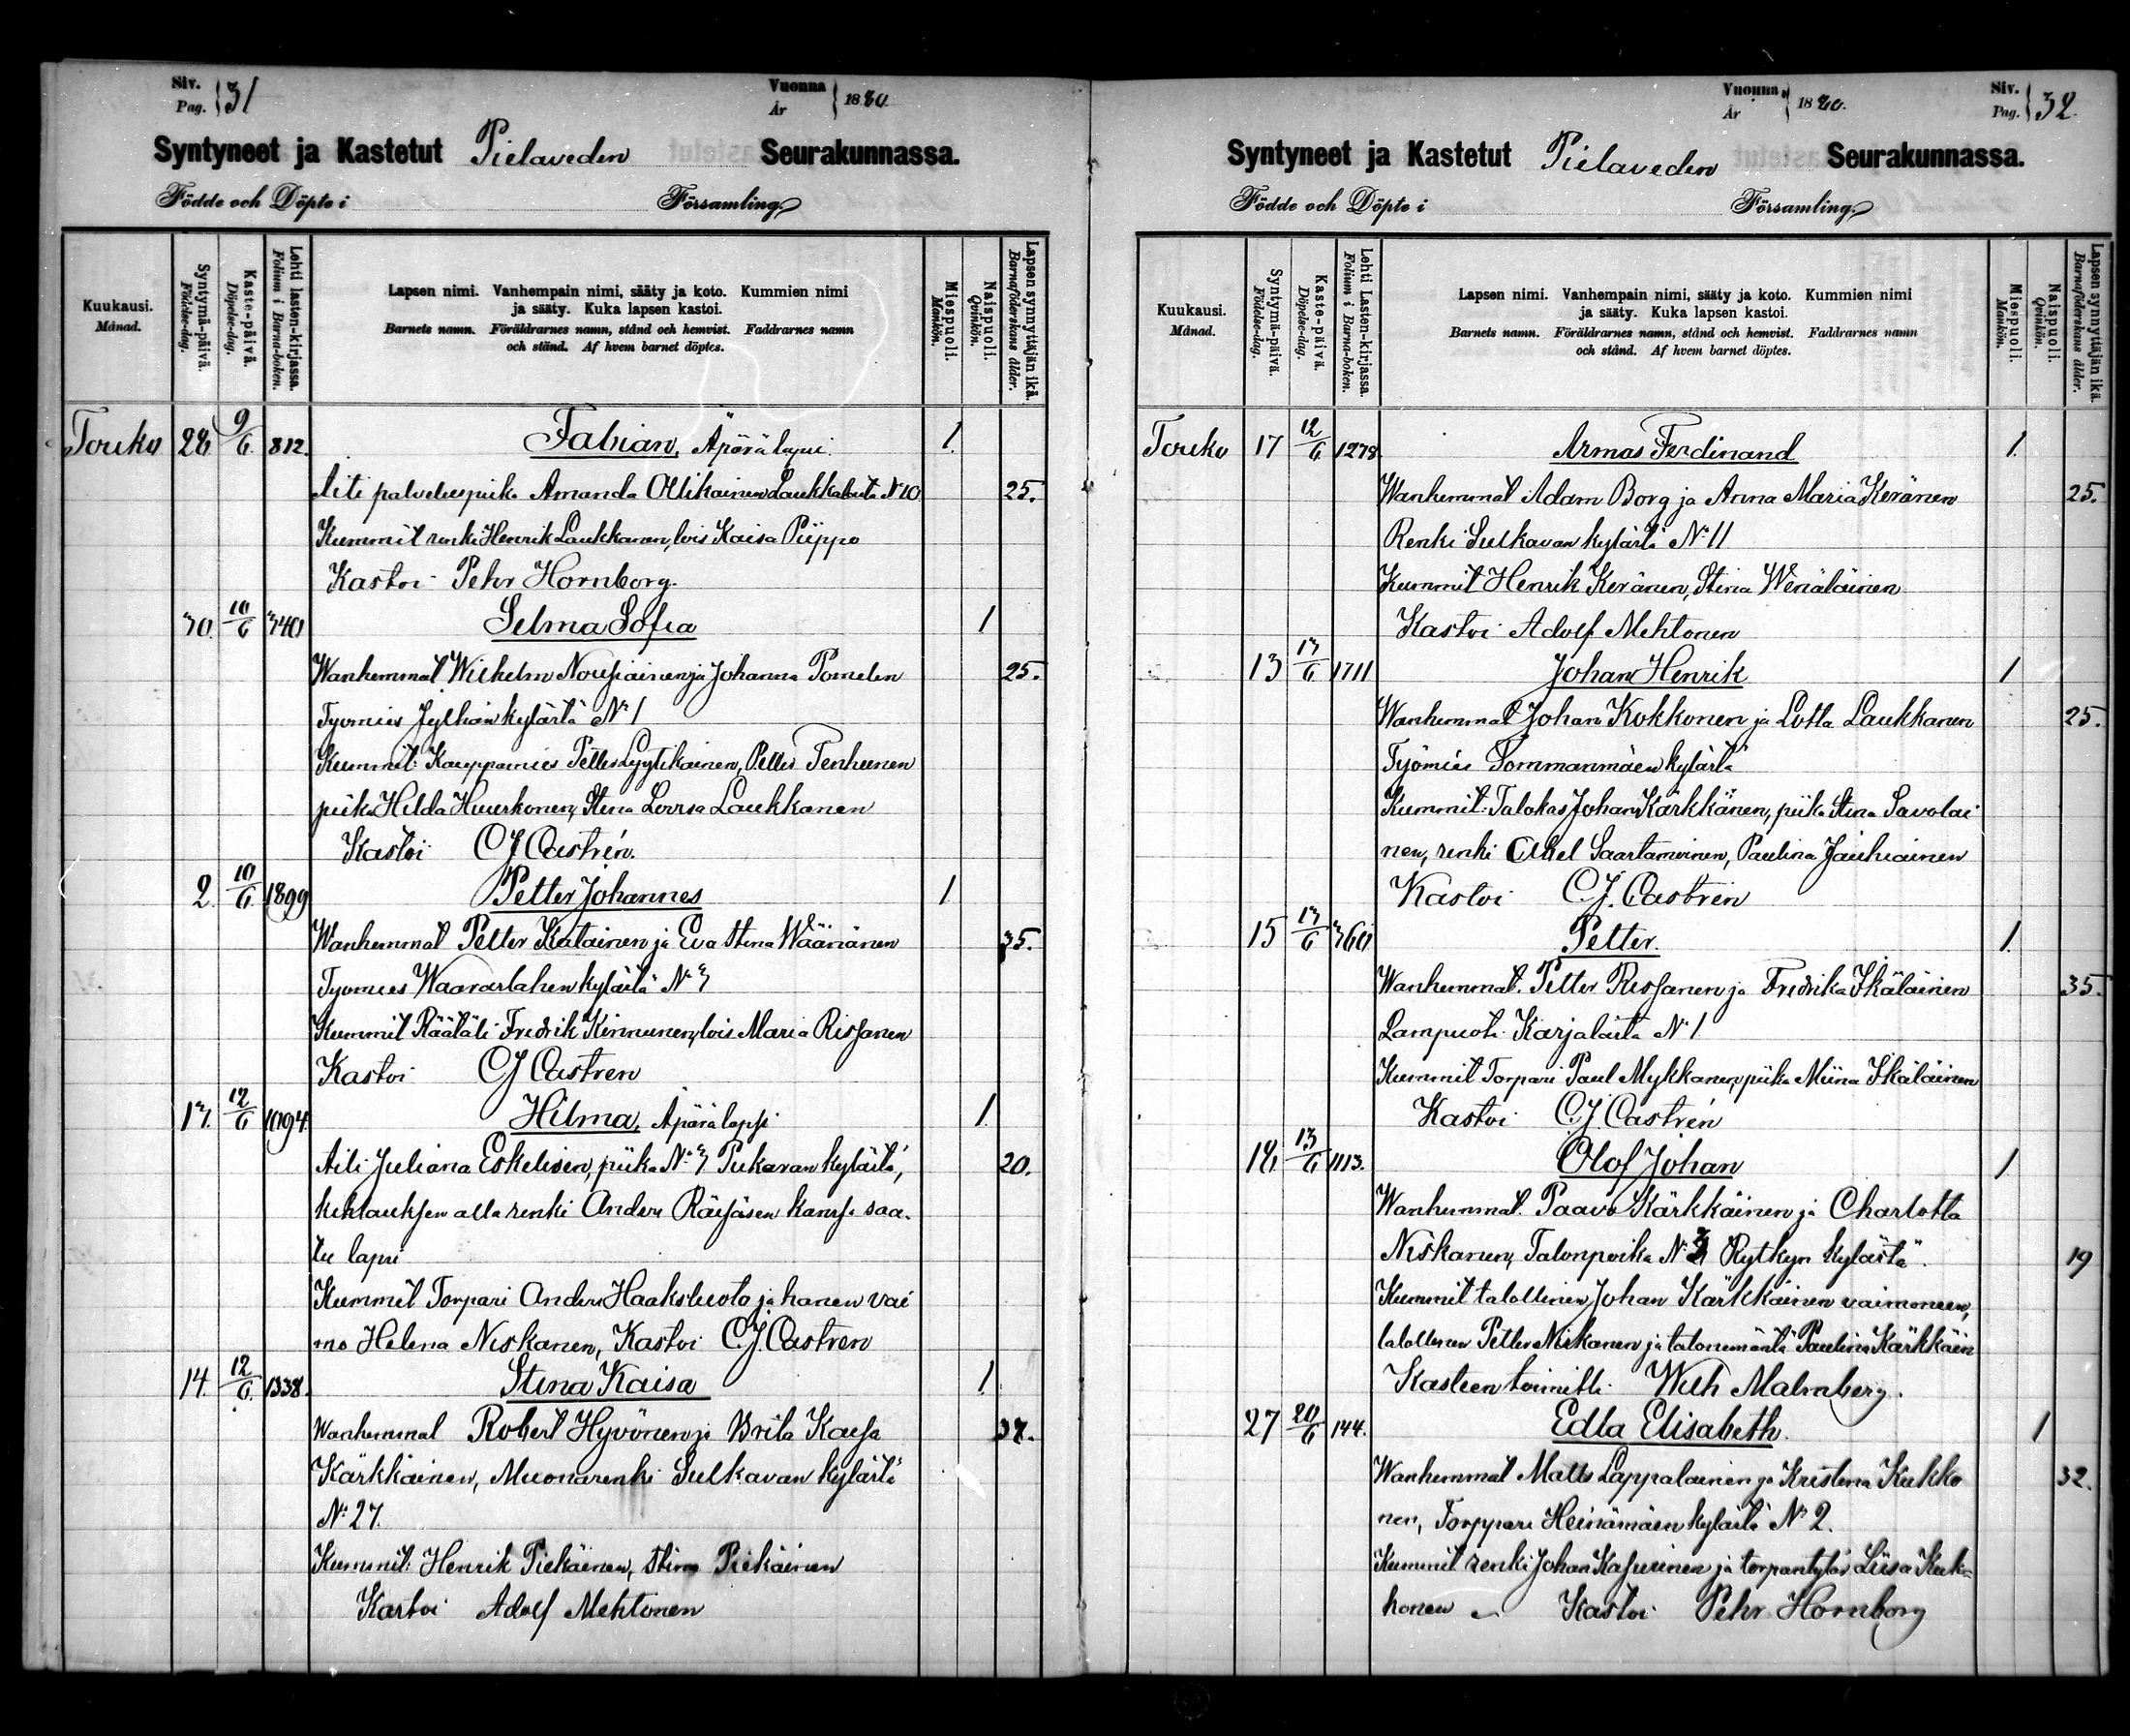 Siv. Pag. 31
Vuonna År 1880.
Syntyneet ja Kastetut Pielaveden Seurakunnassa.
Födde och Döpte i Församling.
Kuukausi. Månad.
Syntymä-päivä. Födelse-dag.
Kaste-päivä. Döpelse-dag.
Lehti lasten-kirjassa. Folium i Barna-boken.
Lapsen nimi. Vanhempain nimi, sääty ja koto. Kummien nimi
ja sääty. Kuka lapsen kastoi.
Barnets namn. Föräldrarnes namn, stånd och hemvist. Faddrarnes namn
och stånd. Af hvem barnet döptes.
Miespuoli. Mankön.
Naispuoli. Qvinkön.
Lapsen synnyttäjän ikä. Barnaföderskans ålder.
Touko 28. 9/6. 812. Fabian, Äpärä lapsi. 1.
Äiti palveluspiika Amanda Ollikainen Laukkalasta N:o 10 25.
Kummit renki Henrik Laukkanen, lois Kaisa Piippo
Kastoi Pehr Hornborg.
30. 10/6 340 Selma Sofia 1
Wanhemmat Wilhelm Nousiainen ja Johanna Pomelen 25.
Tyomies Jylhän kylästä N:o 1
Kummit: Kauppamies Petter Lyytikainen, Petter Tenhunen
piika Hilda Huuskonen, Stina Lovisa Laukkanen
Kastoi CJ Castrén.
2. 10/6. 1899 Petter Johannes 1
Wanhemmat Petter Katainen ja Eva Stina Wäänänen 35.
Tyomies Waaraslahen kylästä N:o 3
Kummit Räätäli Fredrik Kinnunen, lois Maria Rissanen
Kastoi CJ Castren
13. 12/6 1094. Hilma, Äpärä lapsi 1.
Äiti Juliana Eskelisen, piika N:o 3 Pukaran kylästä, 20.
kihlauksen alla renki Anders Räisäsen kanssa saa-
tu lapsi
Kummit Torpari Anders Haaksluoto ja hanen vai
mo Helena Niskanen, Kastoi C.J. Castren
14. 12/6. 1338. Stina Kaisa 1.
Wanhemmat Robert Hyvönen ja Brita Kaisa 37.
Kärkkäinen, Muonarenki Sulkavan kylästä
N:o 27.
Kummit: Henrik Piekäinen, Stina Piekäinen
Kastoi Adolf Mehtonen
Vuonna År 1880.
Siv. Pag. 32.
Syntyneet ja Kastetut Pielaveden Seurakunnassa.
Födde och Döpte i Församling.
Kuukausi. Månad.
Syntymä-päivä. Födelse-dag.
Kaste-päivä. Döpelse-dag.
Lehti Lasten-kirjassa. Folium i Barna-boken.
Lapsen nimi. Vanhempain nimi, sääty ja koto. Kummien nimi
ja sääty. Kuka lapsen kastoi.
Barnets namn. Föräldrarnes namn, stånd och hemvist. Faddrarnes namn
och stånd. Af hvem barnet döptes.
Miespuoli. Mankön.
Naispuoli. Qvinkön.
Lapsen synnyttäjän ikä. Barnaföderskans ålder.
Touko 17 12/6 1278 Armas Ferdinand 1.
Wanhemmat Adam Borg ja Anna Maria Keränen 25.
Renki Sulkavan kylästä N:o 11
Kummit Henrik Keränen, Stina Wenäläinen
Kastoi Adolf Mehtonen
13 13/6 1711 Johan Henrik 1
Wanhemmat Johan Kokkonen ja Lotta Laukkanen 25.
Työmies Sommanmäen kylästä
Kummit: Talokas Johan Kärkkänen, piika Stina Savolai
nen, renki Abel Saastamoinen, Paulina Jauhiainen
Kastoi C.J. Castren
15 13/6 360 Petter. 1.
Wanhemmat. Petter Rissanen ja Fredrika Ikäläinen 35.
Lampuoti Karjalasta N:o 1
Kummit Torpari Paul Mykkanen, piika Miina Ikäläinen
Kastoi C.J. Castrén
18 13/6 1113. Olof Johan 1
Wanhemmat. Paavo Kärkkäinen ja Charlotta
Niskanen, Talonpoika N:o 3 Rytkyn kylästä. 19
Kummit talollinen Johan Kärkkäinen vaimoneen,
talollinen Petter Niskanen ja talonemäntä Paulina Kärkkäin
Kasteen toimitti Wilh Malmberg.
27 20/6 144. Edla Elisabeth. 1
Wanhemmat Matts Lappalainen ja Kristina Kukko 32.
nen, Torppari Heinämäen kylästä N:o 2.
Kummit renki Johan Kasurinen ja torpantytär Liisa Kuk-
konen Kastoi Pehr Hornborg